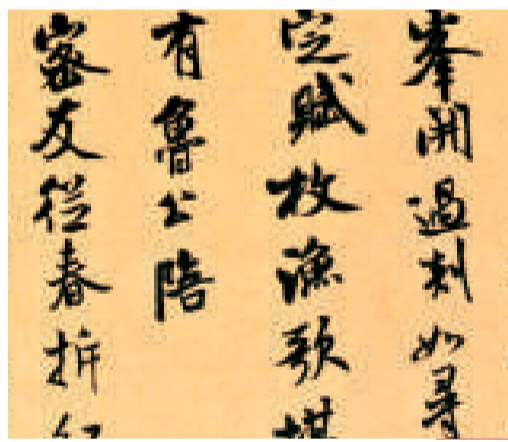 峯開過剡如尋
定賦枚漁歌堪
有魯公陪
密友從春拆紅